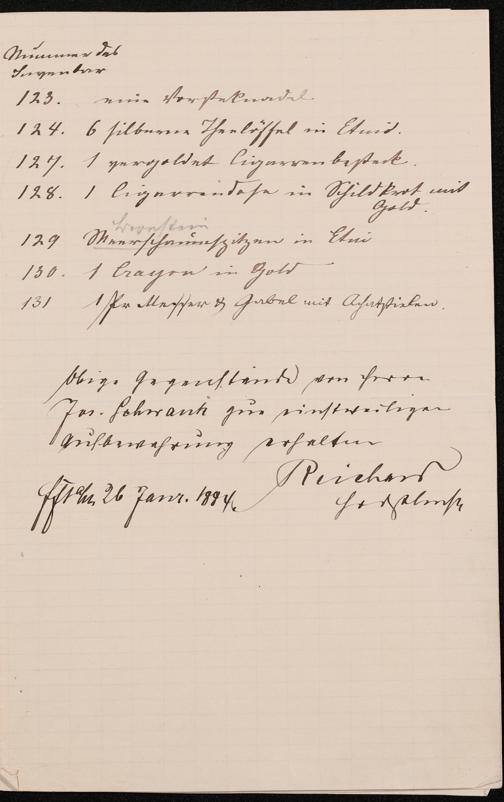 Nummer des
Inventar
123. eine Vorsteknadel
124. 6 silberne Theelöffel in Etuis.
127. 1 vergoldet Cigarrenbesteck.
128. 1 Cigarrendose in Schildkrot mit
Gold.
Bernstein
129 Meerschaumspitzen in Etui
130. 1 Crayon in Gold
131 1 Pr Messer & Gabel mit Achatstielen.
Obige Gegenstände von Herrn
Jos. zur einstweiligen
Aufbewahrung erhalten
Fft a/M 26 Janr. 1884.
Reichard